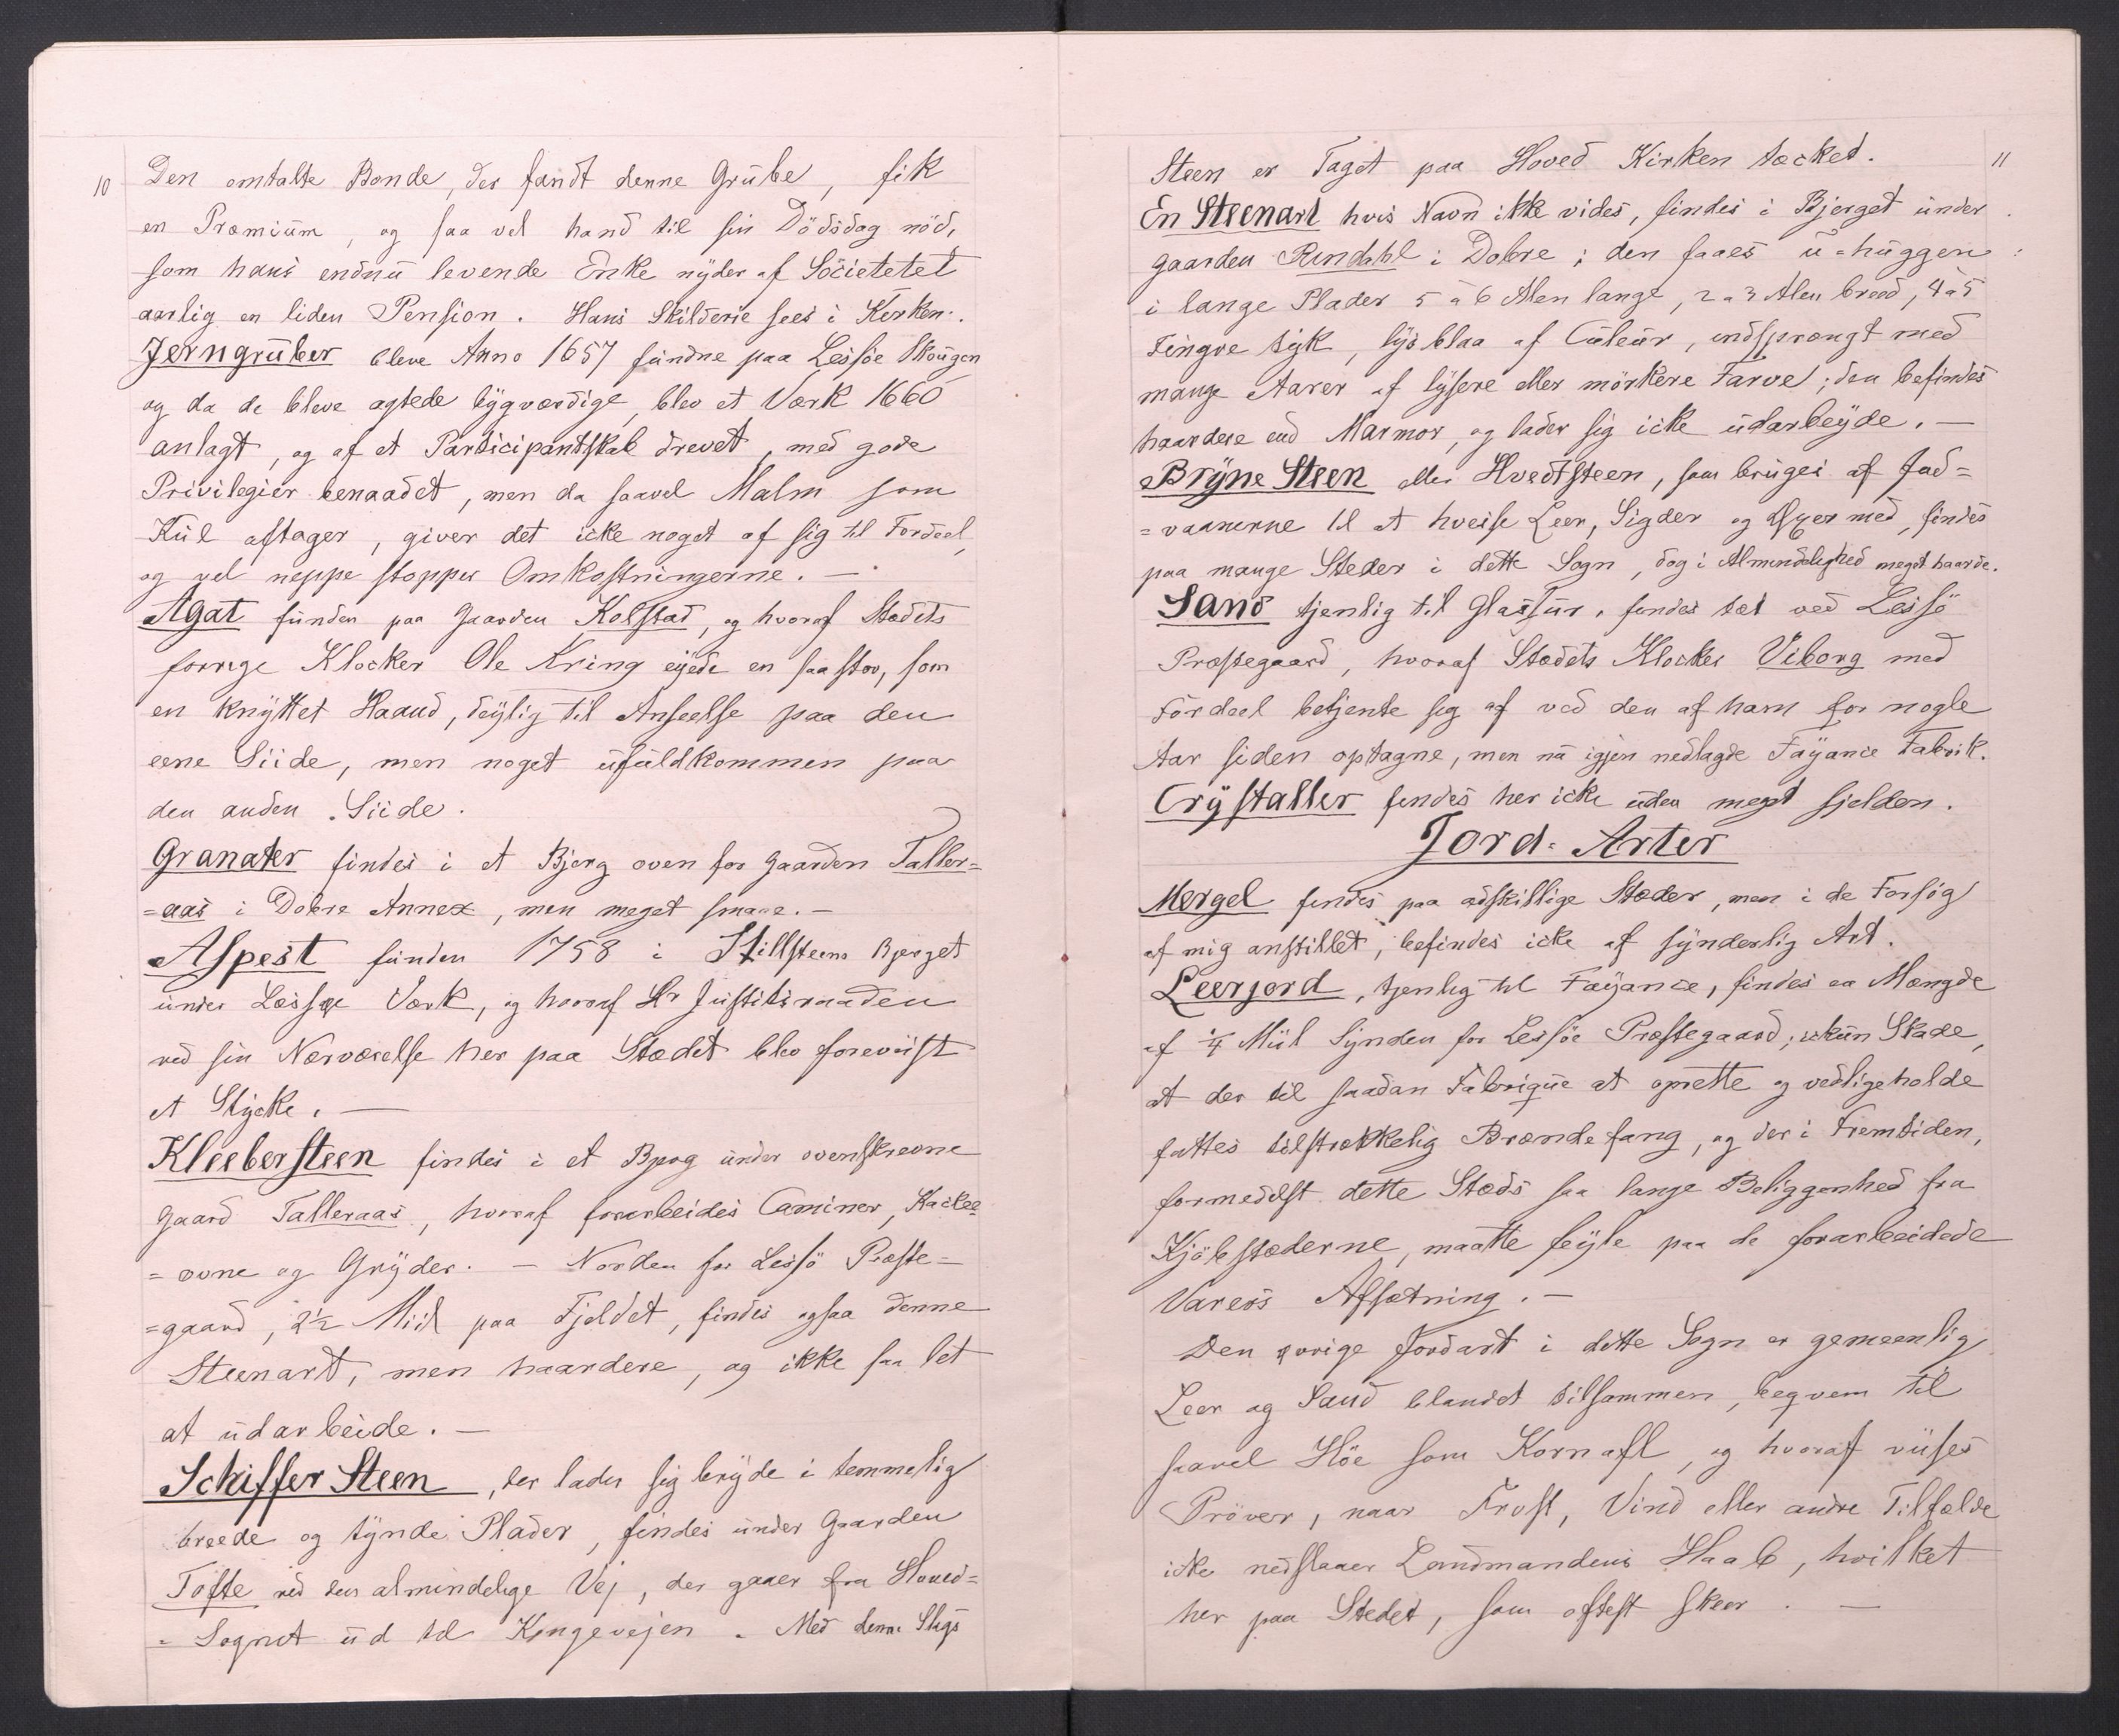 10
Den omtalte Bonde, der fandt denne Grube, fik
en Præmium, og saa vel hand til sin Dödsdag nöd,
som hans endnu levende Enke nyder af Societetet
aarlig en liden Pension. Hans Skilderie sees i Kirken.
Jerngruber bleve Anno 1657 fundne paa Lessöe Skougen
og da de bleve agtede bygværdige, blev et Værk 1660
anlagt, og af et Participantskab drevet, med gode
Privilegier benaadet, men da saavel Malm som
Kul aftager, giver det icke noget af sig til Fordeel,
og vel neppe stopper Omkostningerne. —
Agat funden paa Gaarden Kolstad, og hvoraf Stædets
forrige Klocker Ole Kring eyede en saa stor, som
en knyttet Haand, deylig til Anseelse paa den
eene Siide, men noget ufuldkommen paa
den anden Siide.
Granater findes i et Bjerg oven for Gaarden Taller=
=aas i Dobre Annex, men meget smaae. —
Aspest funden 1758 i Stillsteens Bjerget
under Læssøe Værk, og hvoraf Hr Justitsraaden
ved sin Nærværelse her paa Stædet blev foreviist
et Stycke. —
Kleebersteen findes i et Bjerg under ovenskrevne
Gaard Talleraas, hvoraf forarbeides Caminer, Kackel=
=ovne og Gryder. — Norden for Lessö Præste=
=gaard, 2½ Miil paa Fjeldet, findes ogsaa denne
Steenart, men haardere, og ikke saa let
at udarbeide. —
Schiffer Steen, der lader sig bryde i temmelig
breede og tynde Plader, findes under Gaarden
Tofte ved den almindelige Vej, der gaaer fra Hoved=
=Sognet ud til Kongevejen. Med denne Slags
11
Steen er Taget paa Hoved Kirken tæcket.
En Steenart hvis Navn ikke vides, findes i Bjerget under
Gaarden Rundahl i Dobre; den faaes u=huggen
i lange Plader 5 à 6 Alen lange, 2 à 3 Alen breed, 4 à 5
Fingre tyk, lys blaa af Culeur, indsprængt med
mange Aarer af lysere eller mörkere Farve; den befindes
haardere end Marmor, og lader sig icke udarbeyde. —
Bryne Steen eller Hvedtsteen, som bruges af Ind=
=vaanerne til at hveise Leer, Sigder og Øxer med, findes
paa mange Steder i dette Sogn, dog i Almindelighed meget haarde.
Sand tjenlig til Glassur, findes tæt ved Lessö
Præstegaard, hvoraf Stædets Klocker Viborg med
Fordeel betjente sig af ved den af ham for nogle
Aar siden optagne, men nu igjen nedlagde Fayance Fabrik.
Crystaller findes her icke uden meget sjelden.
Jord-Arter
Mergel findes paa adskillige Stæder, men i de Forsög
af mig anstillet, befindes icke af synderlig Art.
Leerjord, tjenlig til Fayance, findes en Mængde
af ¼ Miil Synden for Lessöe Præstegaard; ickun Skade,
at der til saadan Fabrique at oprette og vedligeholde
fattes tilstrækkelig Brændefang, og der i Fremtiden,
formedelst dette Stæds saa lange Beliggenhed fra
Kjöbstæderne, maatte feyle paa de forarbeidede
Varers Afsætning. —
Den øvrige Jordart i dette Sogn er gemeenlig
Leer og Sand blandet tilsammen, beqvem til
saavel Höe som Kornafl, og hvoraf viises
Pröver, naar Frost, Vind eller andre Tilfælde
icke nedslaaer Landmandens Haab, hvilket
her paa Stedet, som oftest skeer. —